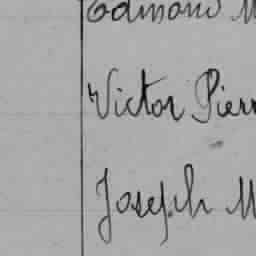 Edmond M
Victor Pierr
Joseph M